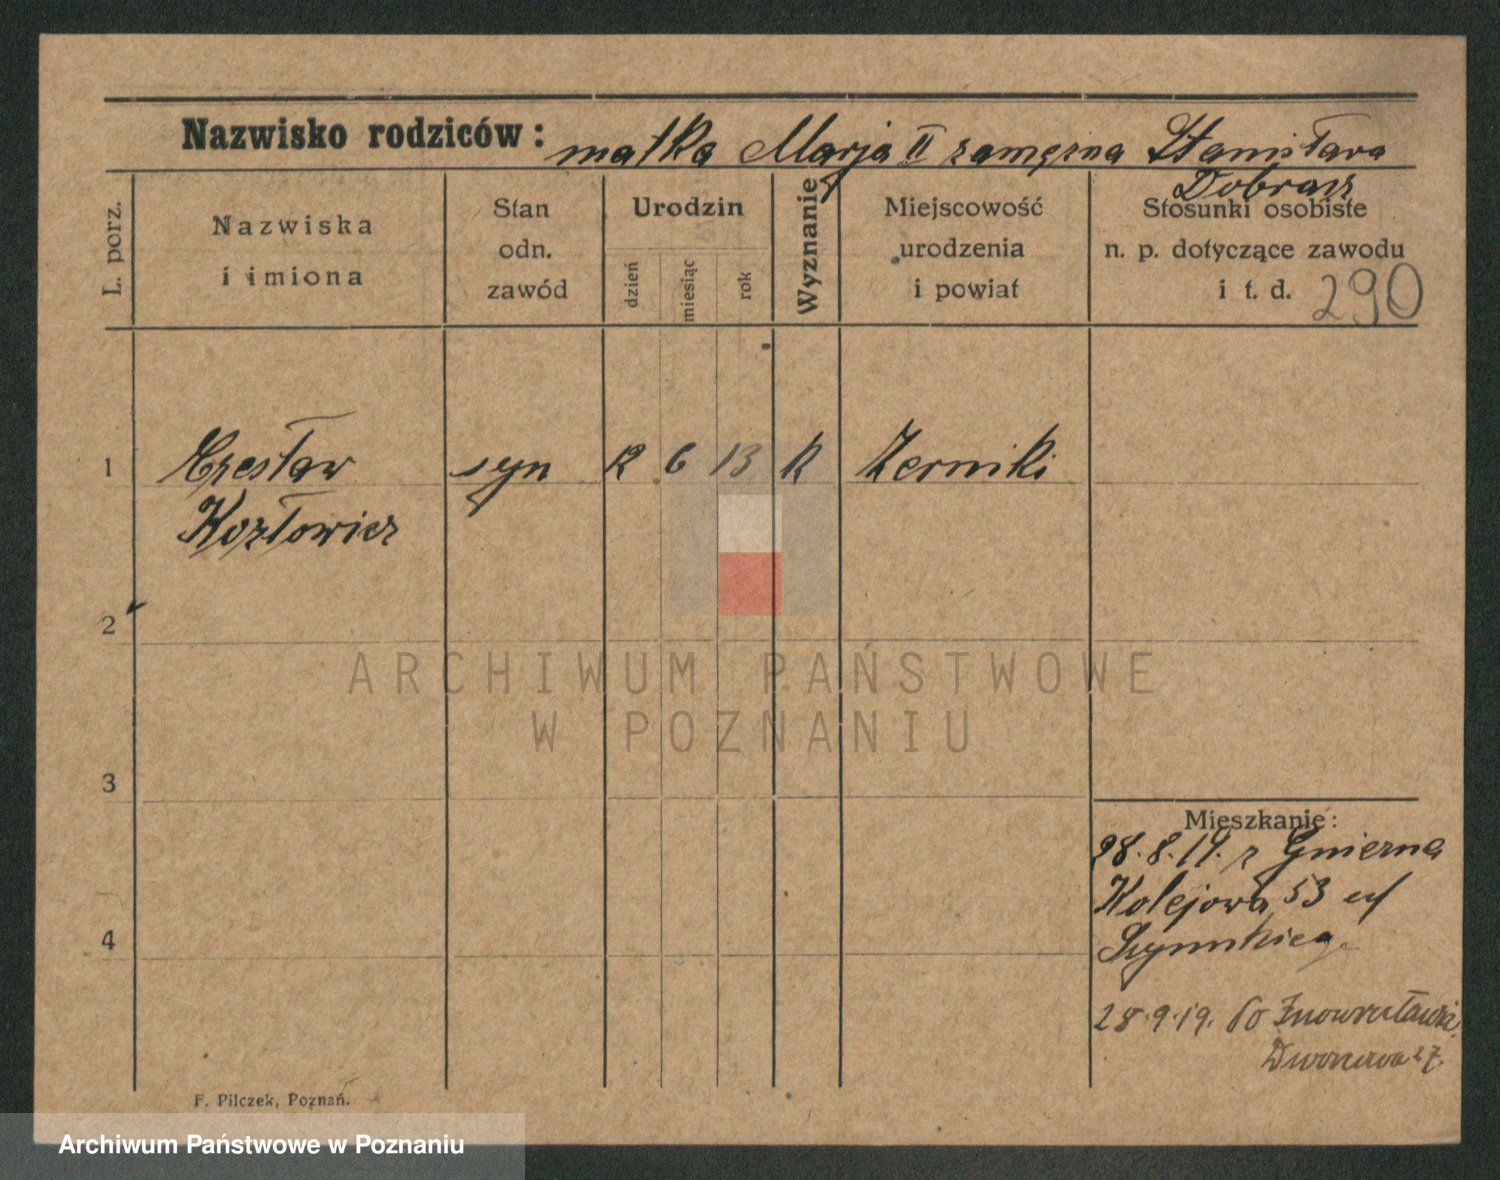 Nazwisko rodziców: matka Marja II zamężna Stanisława
Dobracz
L. porz.
Nazwiska
i imiona
Stan
odn.
zawód
Urodzin
dzień
miesiąc
rok
Wyznanie
Miejscowość
urodzenia
i powiat
Stosunki osobiste
n. p. dotyczące zawodu
i t. d. 290
1 Czesław syn 12 6 13 k Zerniki
Kozłowicz
2
3
4
Mieszkanie:
28.8.19. z Gniezna
Kolejowa 53
28.9.19. do
27.
F. Pilczek, Poznań.
ARCHIWUM PAŃSTWOWE
W POZNANIU
Archiwum Państwowe w Poznaniu